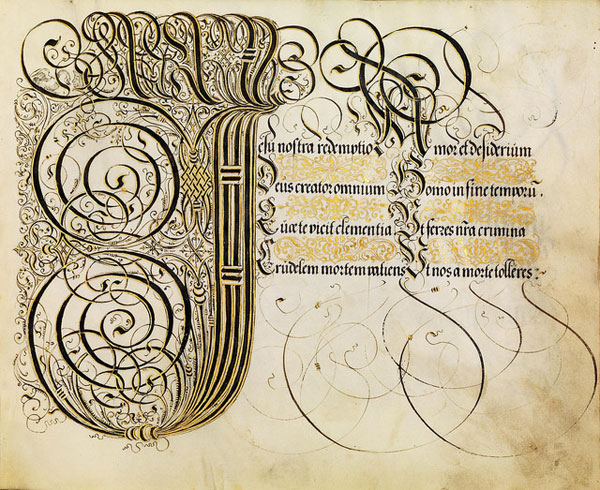 Iesu nostra redemptio Amor et desiderium
Deus creator omnium Homo in fine temporū.
Quæ te vicit clementia Ut ferres nr̃a crimina
Crudelem mortem patiens Ut nos a morte tolleres: